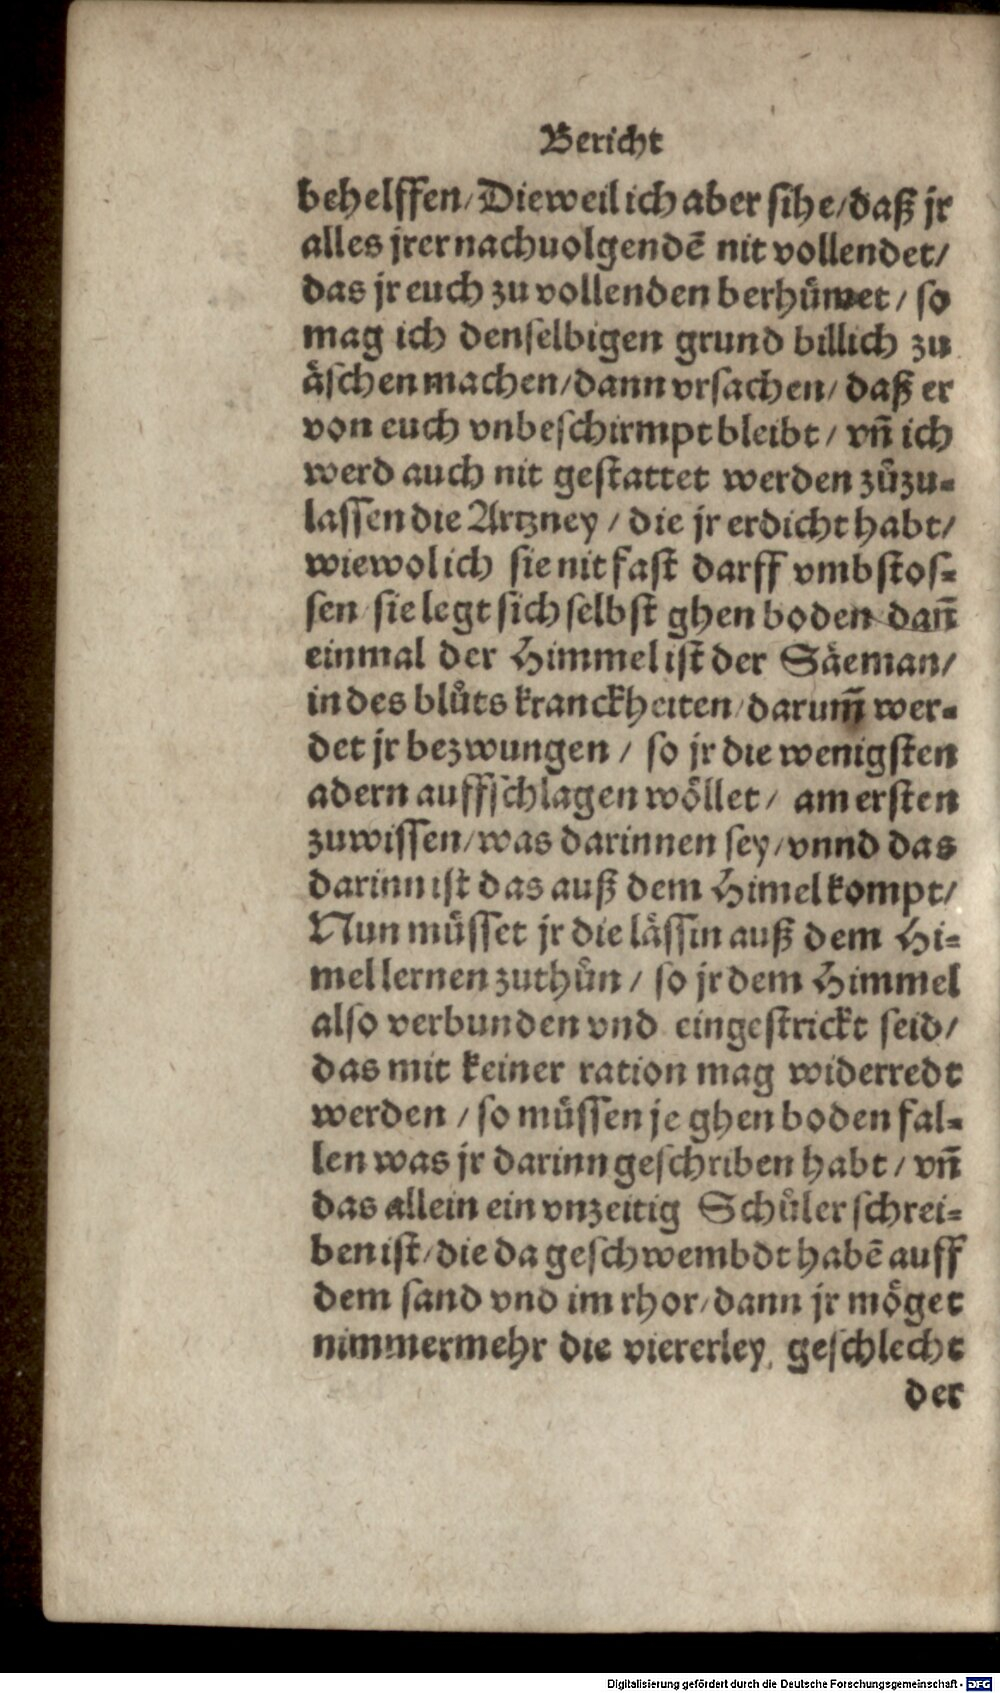 Bericht
behelffen/Dieweil ich aber sihe/daß jr
alles jrer nachuolgendē nit vollendet/
das jr euch zu vollenden berhuͤmet / so
mag ich denselbigen grund billich zu
aͤschen machen/dann vrsachen/ daß er
von euch vnbeschirmpt bleibt / vñ ich
werd auch nit gestattet werden zuͤzu-
lassen die Artzney / die jr erdicht habt/
wiewol ich sie nit fast darff vmbstos-
sen sie legt sich selbst ghen boden dañ
einmal der Himmel ist der Saͤeman/
in des bluͦts kranckheiten/darum̃ wer-
det jr bezwungen / so jr die wenigsten
adern auffschlagen woͤllet / am ersten
zuwissen/was darinnen sey/vnnd das
darinn ist das auß dem Himel kompt/
Nun muͤsset jr die laͤssin auß dem Hi-
mel lernen zuthuͤn / so jr dem Himmel
also verbunden vnd eingestrickt seid/
das mit keiner ration mag widerredt
werden / so muͤssen je ghen boden fal-
len was jr darinn geschriben habt / vñ
das allein ein vnzeitig Schuͤler schrei-
ben ist/die da geschwembdt habē auff
dem sand vnd im rhor/dann jr moͤget
nimmermehr die viererley geschlecht
der
Digitalisierung gefördert durch die Deutsche Forschungsgemeinschaft - DFG